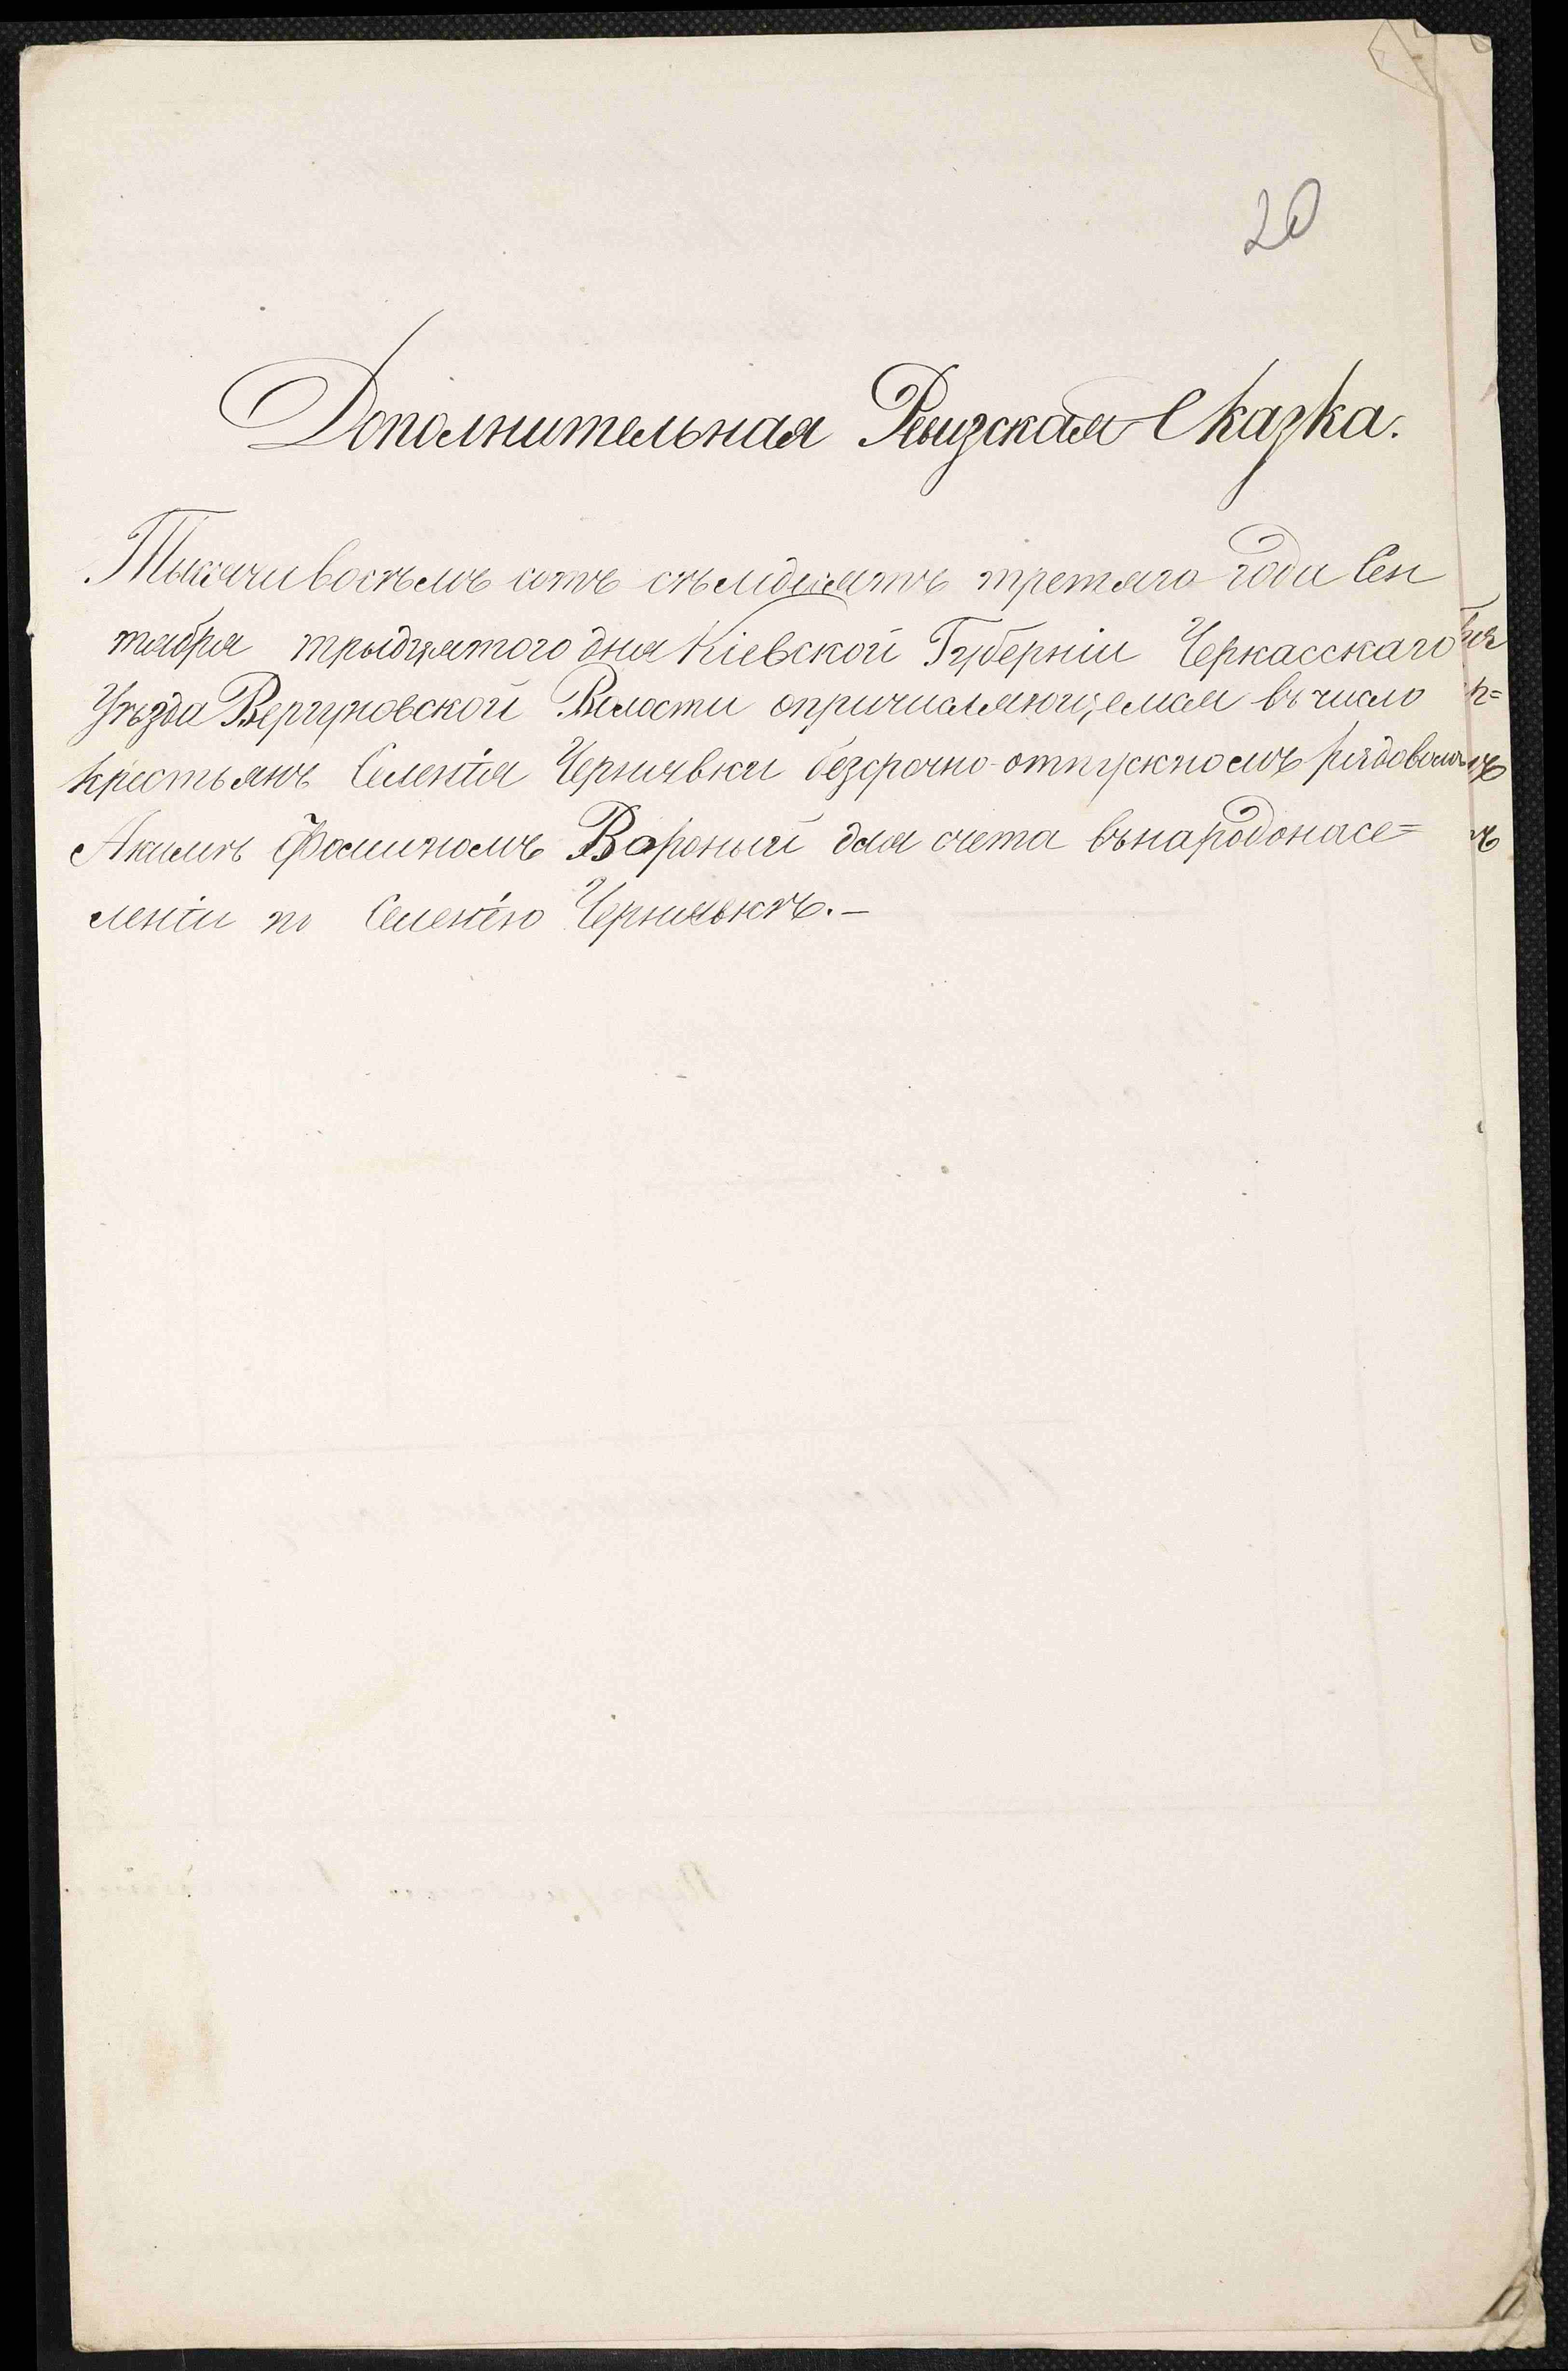 20
Дополнительная Ревизская Сказка.
Тысячи восѣмъ сотъ сѣмдесятъ третяго года Сен
тября трыдцятого дня Кіевской Губерніи Черкасскаго
Уѣзда Вергуновской Волости опричисляющемся въ число
крестьянъ Селенія Чернявки безсрочно-отпускномъ рядовомъ
Акимѣ Фоминомъ Вороный для счета въ народонасе=
леніи по Селенію Чернявкѣ.—